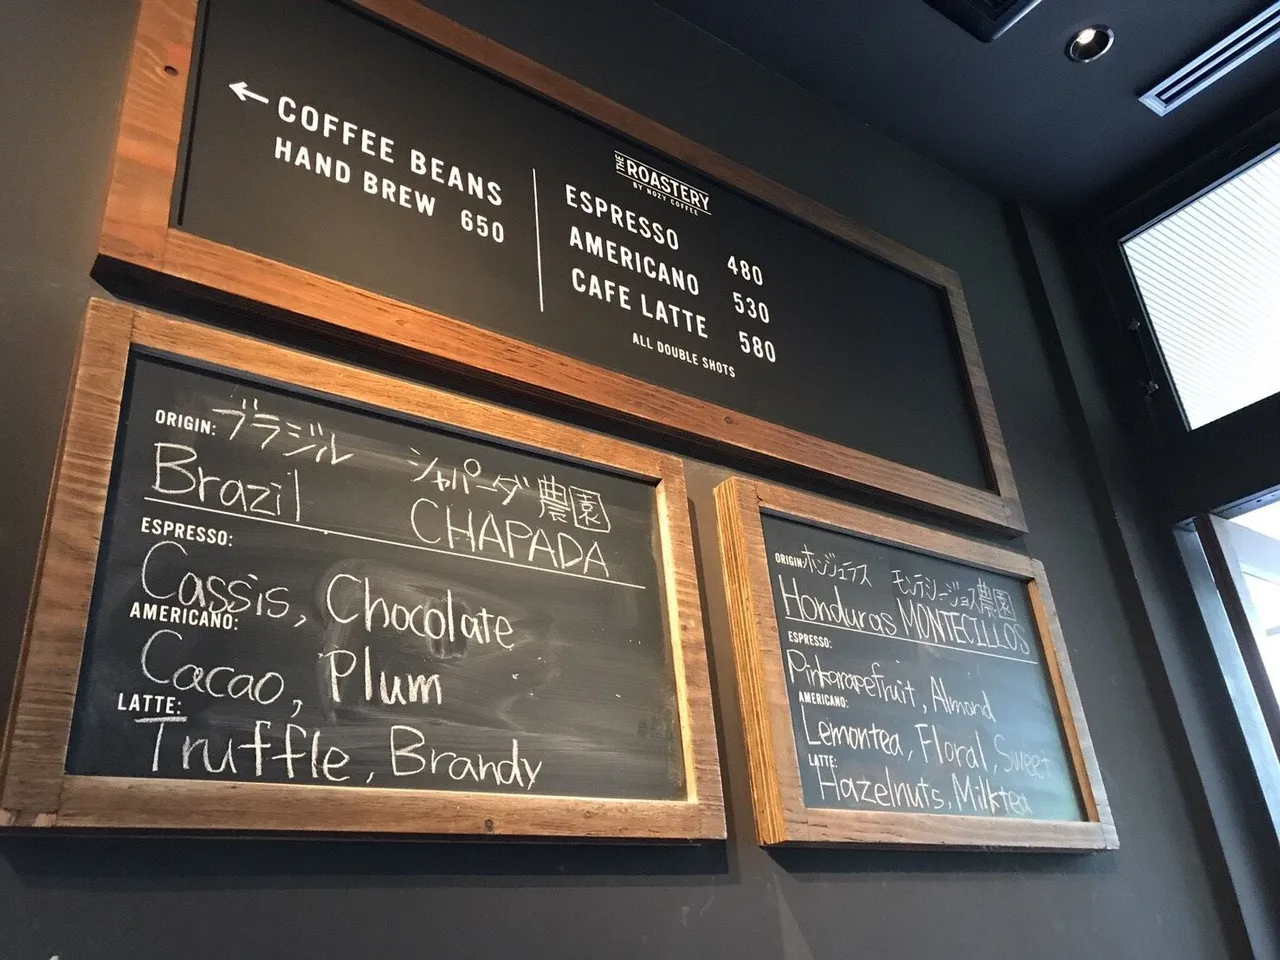 ← COFFEE BEANS
HAND BREW 650
THE ROASTERY
BY NOZY COFFEE
ESPRESSO 480
AMERICANO 530
CAFE LATTE 580
ALL DOUBLE SHOTS
ORIGIN: ブラジル シャパーダ農園
Brazil CHAPADA
ESPRESSO:
Cassis, Chocolate
AMERICANO:
Cacao, Plum
LATTE:
Truffle, Brandy
ORIGIN: ホンジュラス モンテシージョス農園
Honduras MONTECILLOS
ESPRESSO:
Pinkgrapefruit, Almond
AMERICANO:
Lemontea, Floral, Sweet
LATTE:
Hazelnuts, Milktea